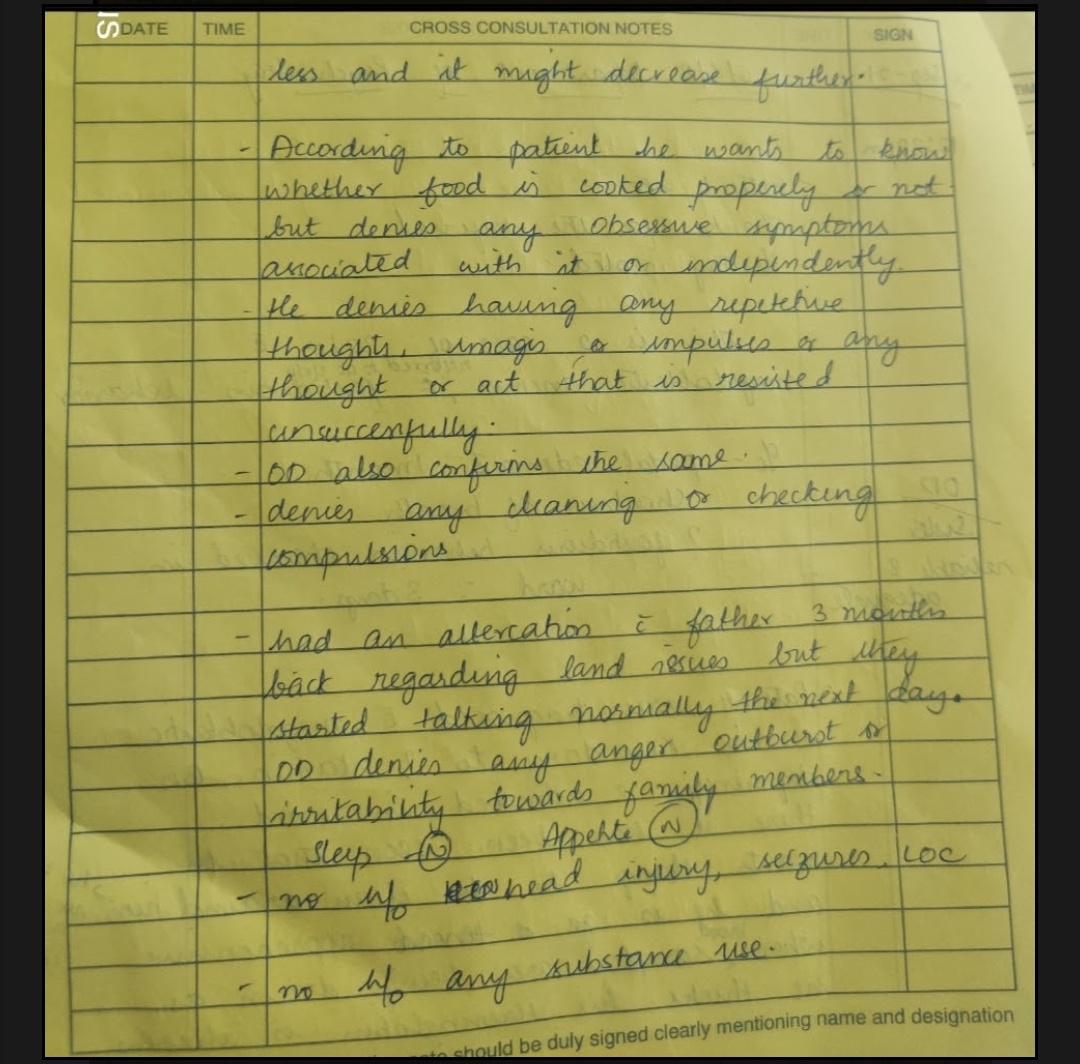 DATE TIME CROSS CONSULTATION NOTES SIGN
less and it might decrease further.
- According to patient he wants to know
whether food is cooked properely or not
but denies any obsessive symptoms
associated with it or independently.
- He denies having any repetetive
thoughts, images or impulses or any
thought or act that is resisted
unsuccenfully.
- OD also confirms the same.
- denies any cleaning or checking
compulsions
- had an altercation c̄ father 3 months
back regarding land issues but they
started talking normally the next day.
OD denies any anger outburst or
irritability towards family members.
Sleep - (N) Appetite (N)
- no h/o head injury, seizures, LOC
- no h/o any substance use.
should be duly signed clearly mentioning name and designation